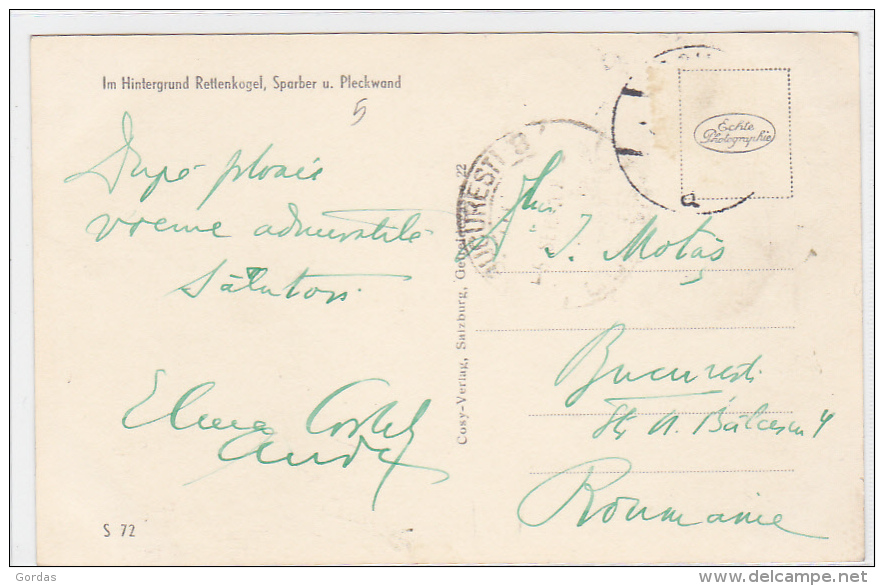 Im Hintergrund Rettenkogel, Sparber u. Pleckwand
5
După ploaie
vreme admirabilă
Salutări
Elena Costel
S 72
Cosy-Verlag, Salzburg, 22
BUCURESTI 8
Echte
Photographie
J. Motaș
București
Str. N. Bălcescu 4
Roumanie
Gordas
www.delcampe.net